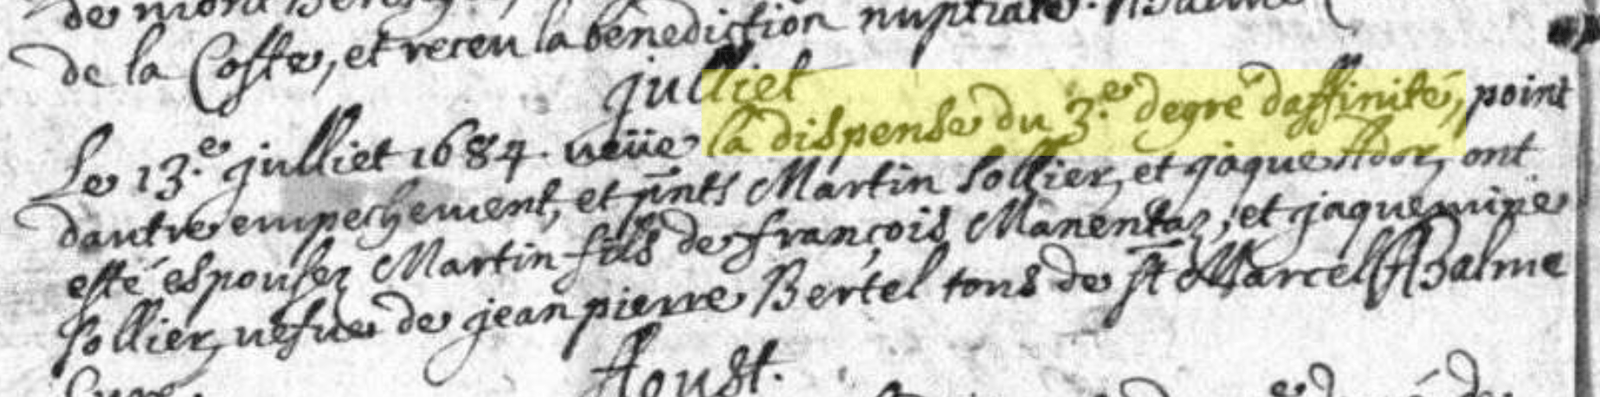 de la Coste, et receu la benediction nuptiale.
julliet
Le 13.e julliet 1684 veüe la dispense du 3.e degré daffinité, point
dautre empechement, et pnts Martin Sollier, et jaque Ador, ont
esté espousez Martin fils de françois Manentaz, et jaquemine
Sollier, vefue de jean pierre Bertel tous de St Marcel Balme
Aoust.